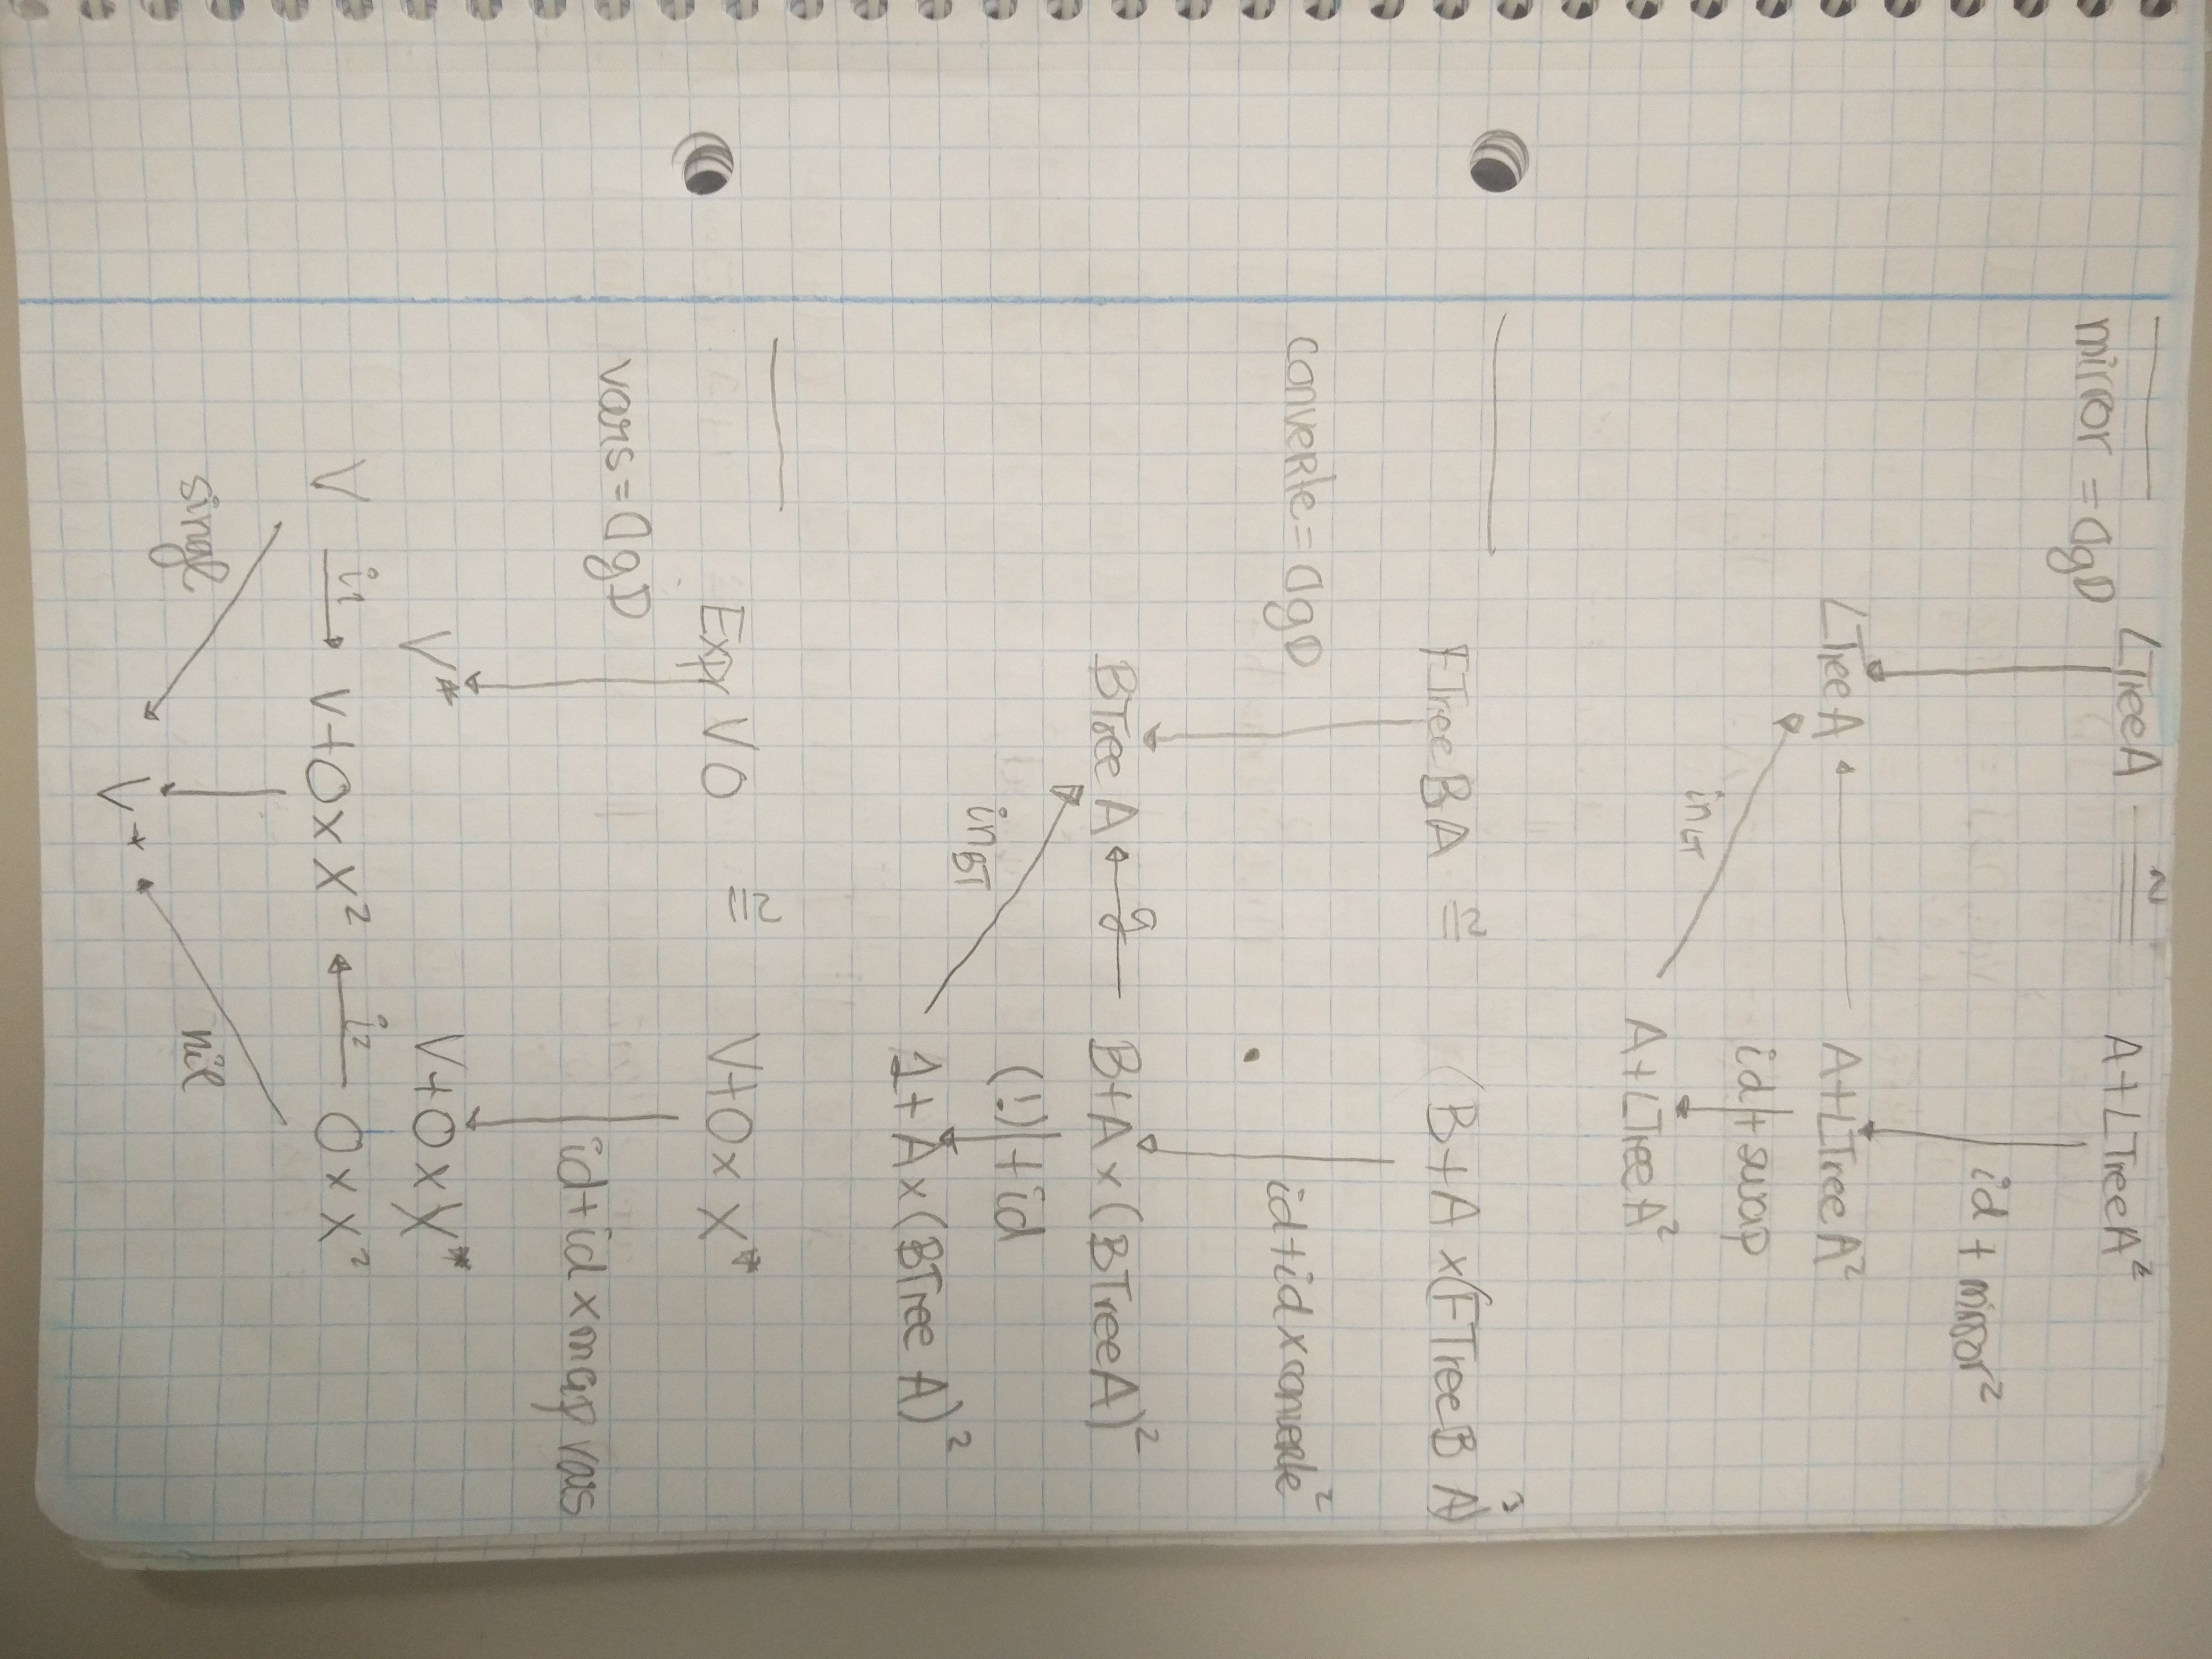 LTreeA ≅ A+LTreeA²
mirror = ⦇g⦈
id + mirror²
LTreeA A+LTreeA²
id+swap
in_LT
A+LTreeA²
FTree B A ≅ (B+A ×(FTree B A)³
converte = ⦇g⦈ id+id × converte²
BTree A g B+A × (BTree A)²
(!)+id
in_BT
1+A×(BTree A)²
Expr V O ≅ V+O× X*
vars = ⦇g⦈
id+id × map vars
V* V+O×X*
V i₁ V+O×X² i₂ O×X²
singl nil
V*